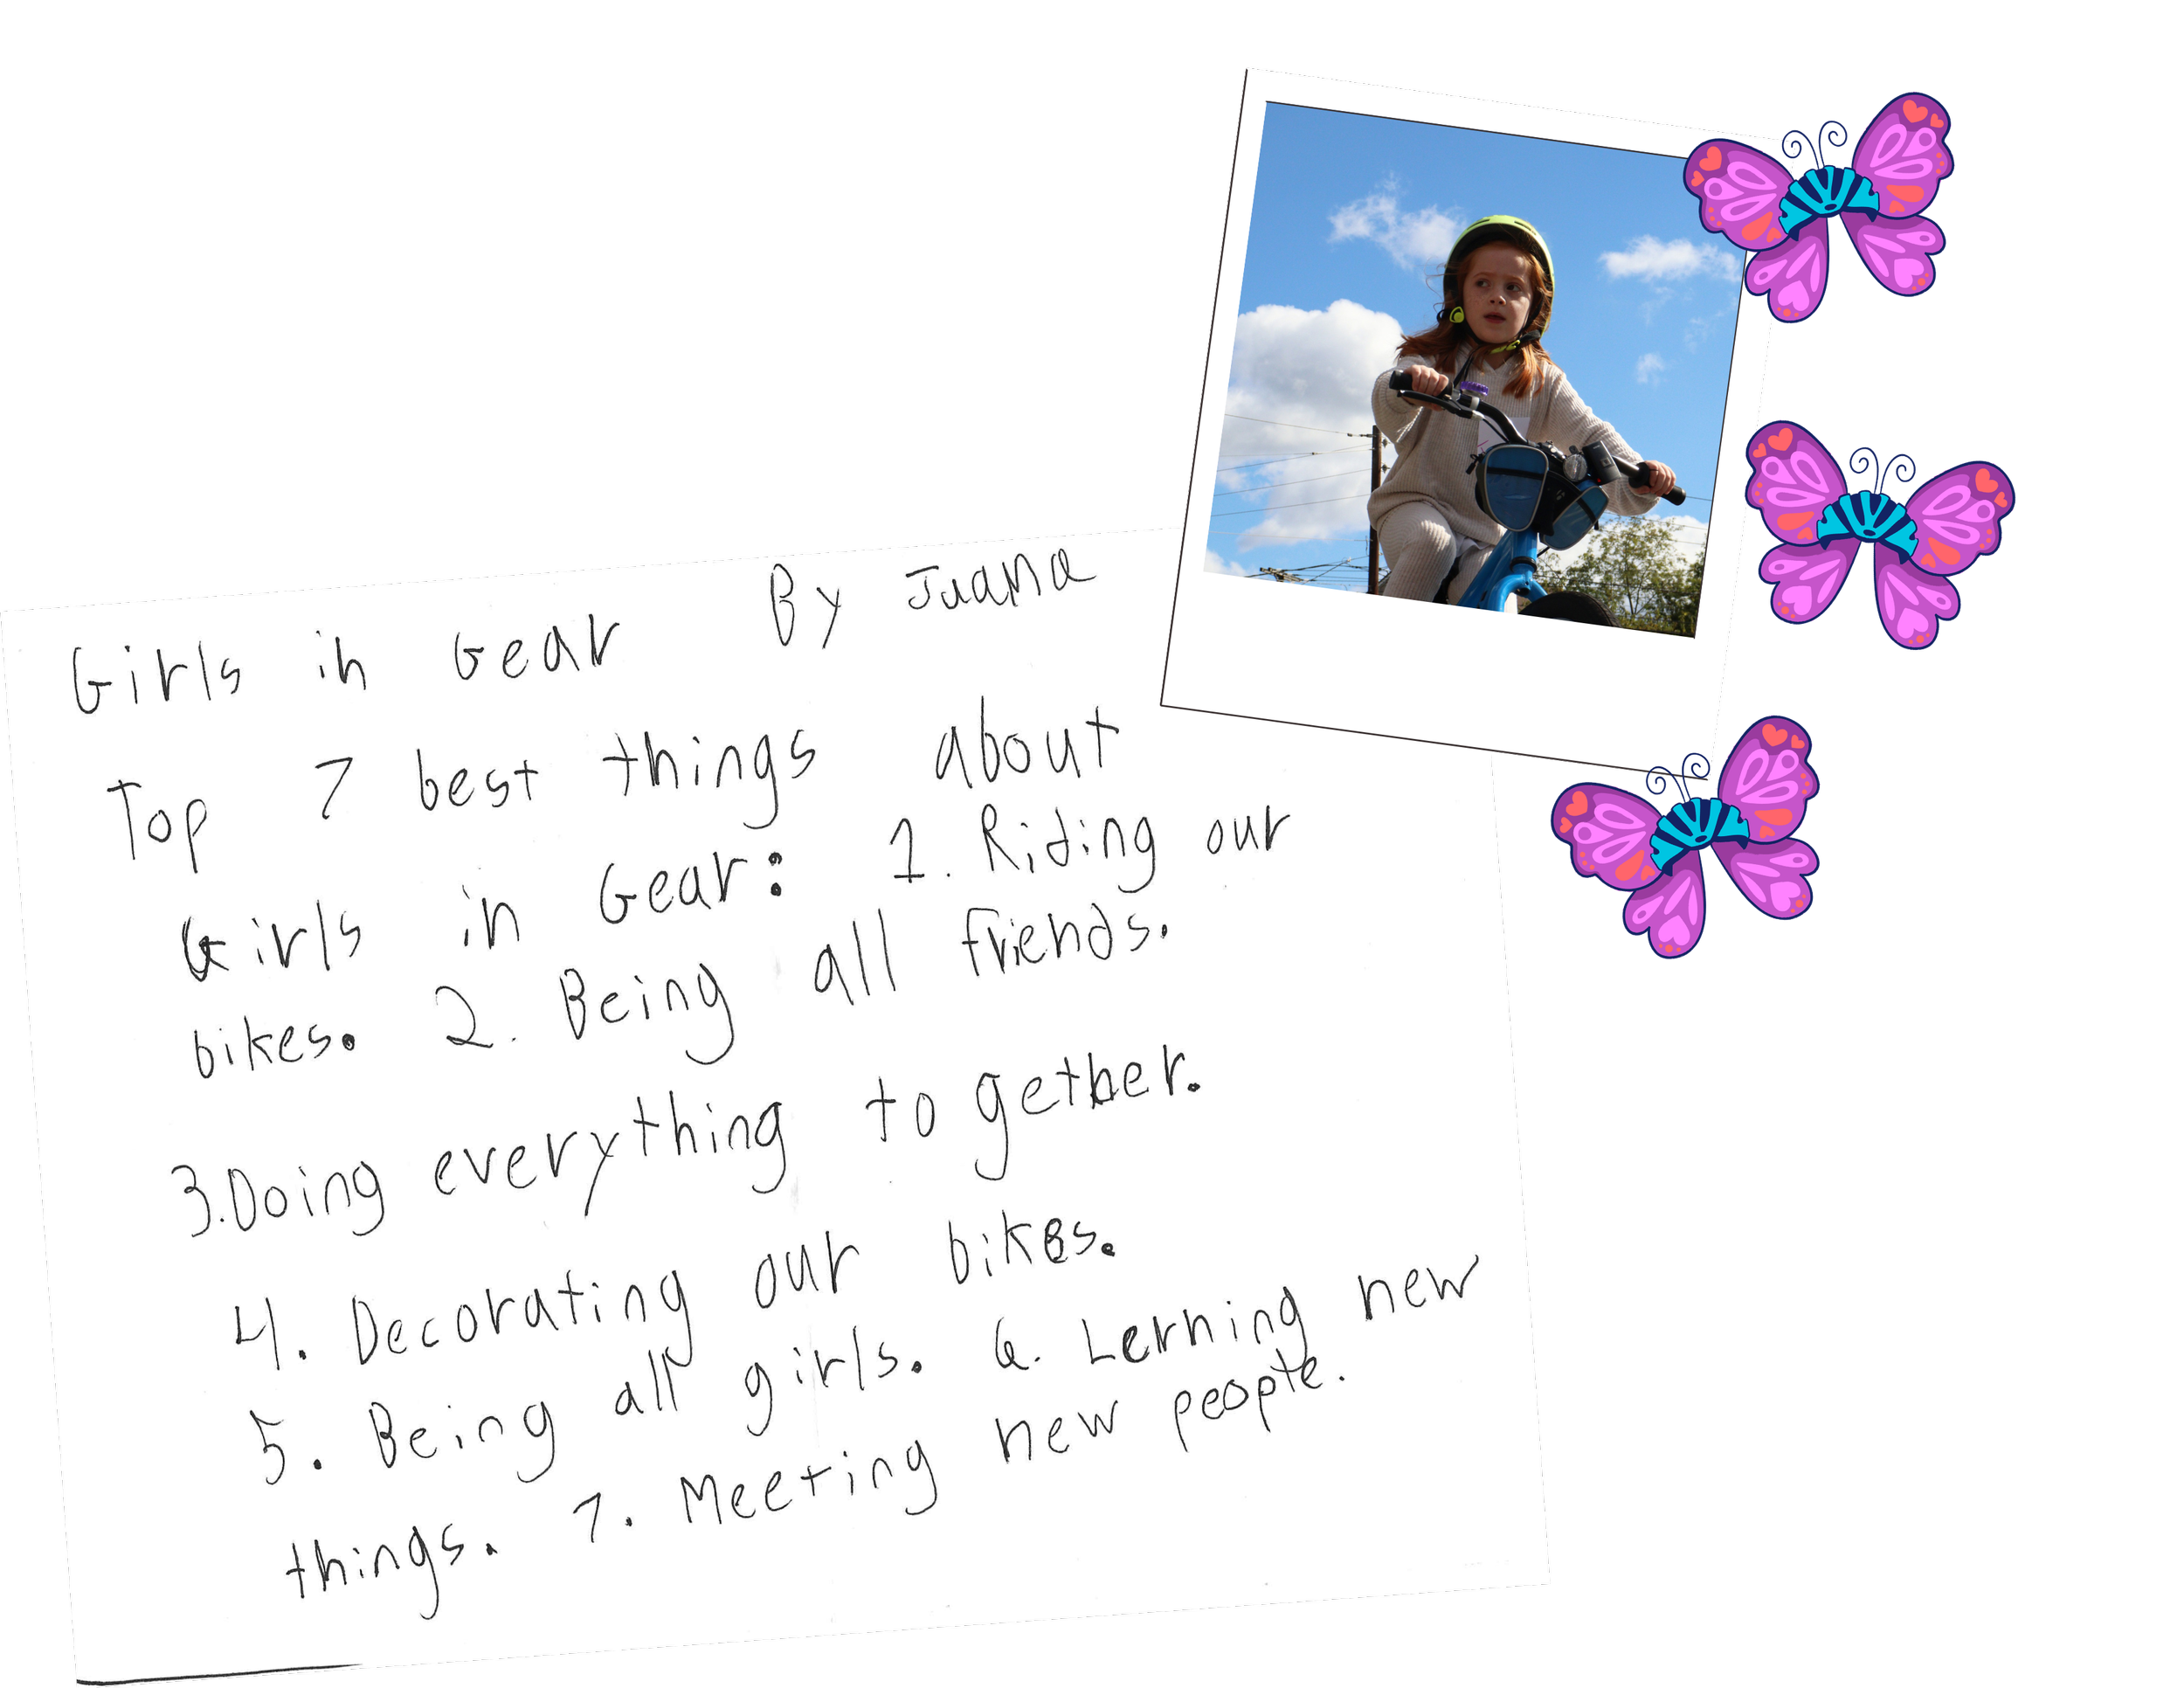 Girls in Gear By Juana
Top 7 best things about
Girls in Gear: 1. Riding our
bikes. 2. Being all friends.
3.Doing everything to gether.
4. Decorating our bikes.
5. Being all girls. 6. Lerning new
things. 7. Meeting new people.